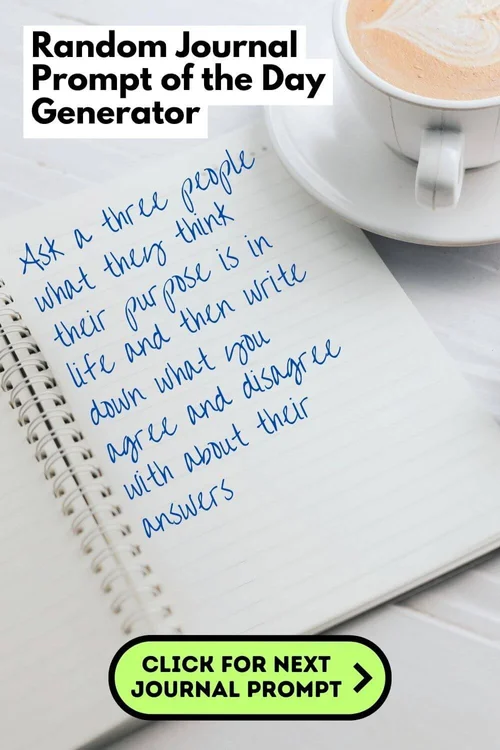 Random Journal
Prompt of the Day
Generator
Ask a three people
what they think
their purpose is in
life and then write
down what you
agree and disagree
with about their
answers
CLICK FOR NEXT
JOURNAL PROMPT